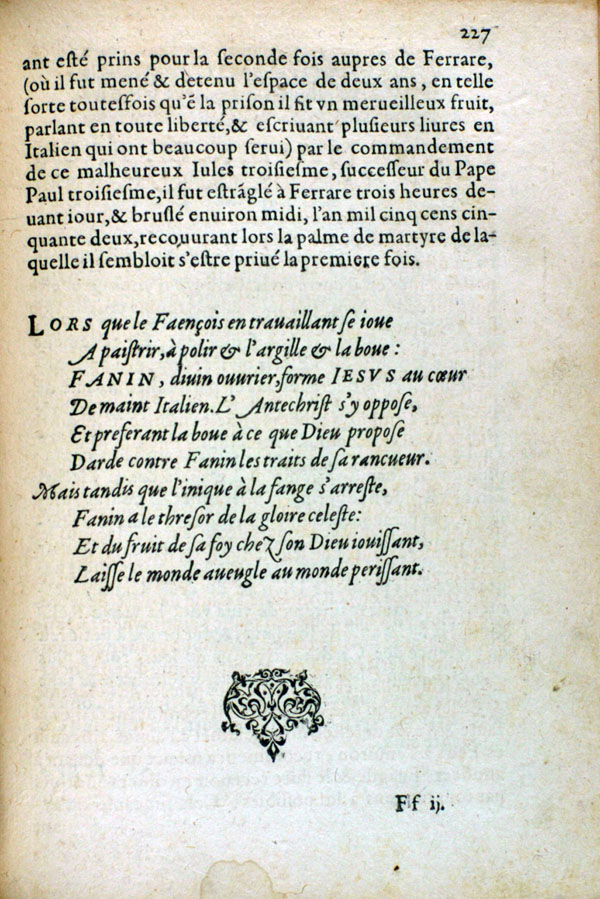 227
ant esté prins pour la seconde fois aupres de Ferrare,
(où il fut mené & detenu l'espace de deux ans, en telle
sorte toutesfois qu'ẽ la prison il fit vn merueilleux fruit,
parlant en toute liberté, & escriuant plusieurs liures en
Italien qui ont beaucoup serui) par le commandement
de ce malheureux Iules troisiesme, successeur du Pape
Paul troisiesme, il fut estrãglé à Ferrare trois heures de-
uant iour, & bruslé enuiron midi, l'an mil cinq cens cin-
quante deux, recouurant lors la palme de martyre de la-
quelle il sembloit s'estre priué la premiere fois.
LORS que le Faençois en trauaillant se ioue
A paistrir, à polir & l'argille & la boue :
FANIN, diuin ouurier, forme IESVS au cœur
De maint Italien. L'Antechrist s'y oppose,
Et preferant la boue à ce que Dieu propose
Darde contre Fanin les traits de sa rancueur.
Mais tandis que l'inique à la fange s'arreste,
Fanin a le thresor de la gloire celeste:
Et du fruit de sa foy chez son Dieu iouissant,
Laisse le monde aueugle au monde perissant.
Ff ij.